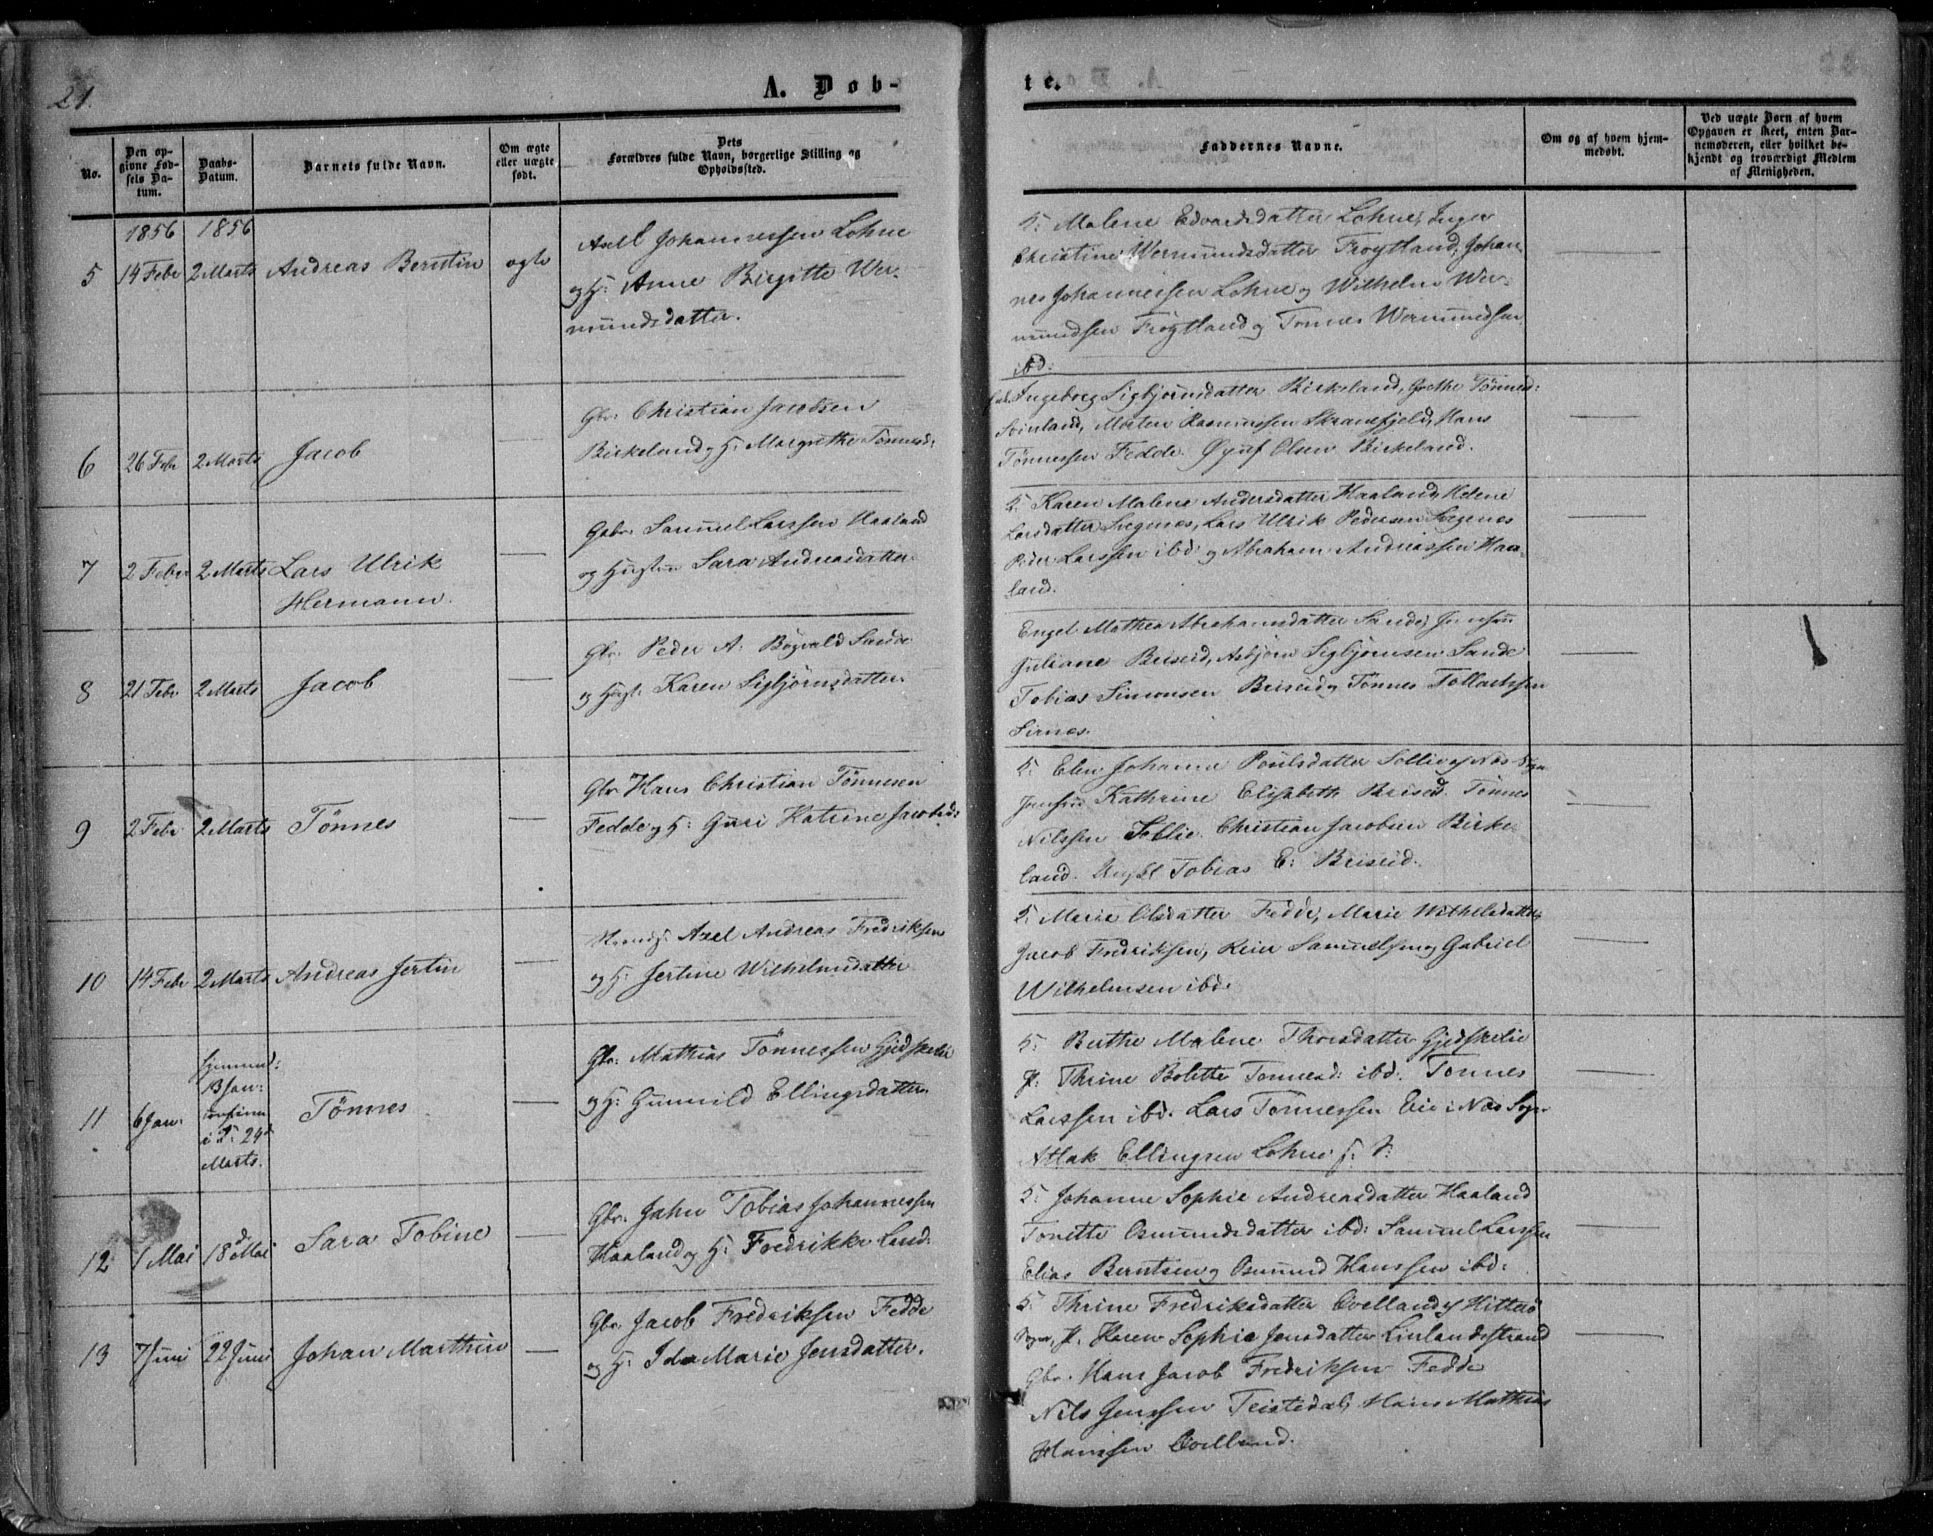 21.
A. Døb-
te.
No.
Den op-
givne Fød-
sels Da-
tum.
Daabs-
Datum.
Barnets fulde Navn.
Om ægte
eller uægte
født.
Dets
Forældres fulde Navn, borgerlige Stilling og
Opholdssted.
Faddernes Navne.
Om og af hvem hjem-
medøbt.
Ved uægte Børn af hvem
Opgaven er skeet, enten Bar-
nemoderen, eller hvilket be-
kjendt og troværdigt Medlem
af Menigheden.
1856 1856
5 14 Febr 2 Marts Andreas Berntin ægte
Axell Johannessen Lohne
og H: Anne Birgitte Wer-
mundsdatter.
H: Malene Edvardsdatter Lohne, Inger
Christine Wermundsdatter Frøytland, Johan-
nes Johannessen Lohne og Wilhelm Wer-
mundsen Frøytland og Tønnes Wermundsen
ibd:
6 26 Febr 2 Marts Jacob
Gbr: Christian Jacobsen
Birkeland og H: Margrethe Tønnesd:
Ingeborg Sigbjørnsdatter Birkeland, Grethe Tønnesd:
Svinland, Morten Rasmussen Skransfjeld, Hans
Tønnessen Fedde. Øyuf Olsen Birkeland.
7 2 Febr 2 Marts Lars Ulrik
Hermann.
Gbr: Samuel Larssen Haaland
og Hustru Sara Andreasdatter
H: Karen Malene Andersdatter Haaland, Helene
Larsdatter Svegenes, Lars Ulrik Pedersen Svegenes
Peder Larssen ibd og Abraham Andreassen Haa-
land.
8 21 Febr 2 Marts Jacob
Gbr: Peder A: Røgvald Sande
og Hust: Karen Sigbjørnsdatter
Engel Mathea Abrahamsdatter Sande, Jomfru
Juliane Briseid, Asbjørn Sigbjørnsen Sande
Tobias Simonsen Briseid og Tønnes Tollachsen
Sirnes.
9 2 Febr 2 Marts Tønnes
Gbr Hans Christian Tønnesen
Fedde og H: Guri Katrine Jacobsd:
H: Elen Johanne Poulsdatter Sollie af Næs Sogn
Jomfru Kathrine Elisabeth Briseid. Tønnes
Nilssen Sollie. Christian Jacobsen Birke-
land. Tobias E: Briseid.
10 14 Febr 2 Marts Andreas Jertin
Axel Andreas Fredriksen
og H: Jertine Wilhelmsdatter
H: Marie Olsdatter Fedde, Marie Wilhelsdatter
Jacob Fredriksen, Reier Samuelsen og Gabriel
Wilhelmsen ibd.
11 6 Jan. Hjemmed:
13 Jan:
confirm
i K: 24d
Marts.
Tønnes
Gbr: Mathias Tønnessen Gjedskelie
og H: Gunnild Ellingsdatter
H: Berthe Malene Thorsdatter Gjedskelie
P: Thrine Bolette Tønnesd: ibd. Tønnes
Larssen ibd. Lars Tønnessen Eie i Næs Sogn
Atlak Ellingsen Lohne
12 1 Mai 18d Mai Sara Tobine
Gbr. Jahn Tobias Johannessen
Haaland og H: Fredrikke Larsd:
H: Johanne Sophie Andreasdatter Haaland
Tonette Osmundsdatter ibd: Samuel Larssen
Elias Berntsen og Osmund Hanssen ibd:
13 7 Juni 22 Juni Johan Marthin
Gbr: Jacob Fredriksen Fedde
og H: Ida Marie Jensdatter.
H: Thrine Fredriksdatter Qvelland af Hitterø
Sogn, P: Karen Sophie Jensdatter Linlandsstrand
Gbr. Hans Jacob Fredriksen Fedde
Nils Jenssen Teistedal, Hans Mathias
Hanssen Qvelland.